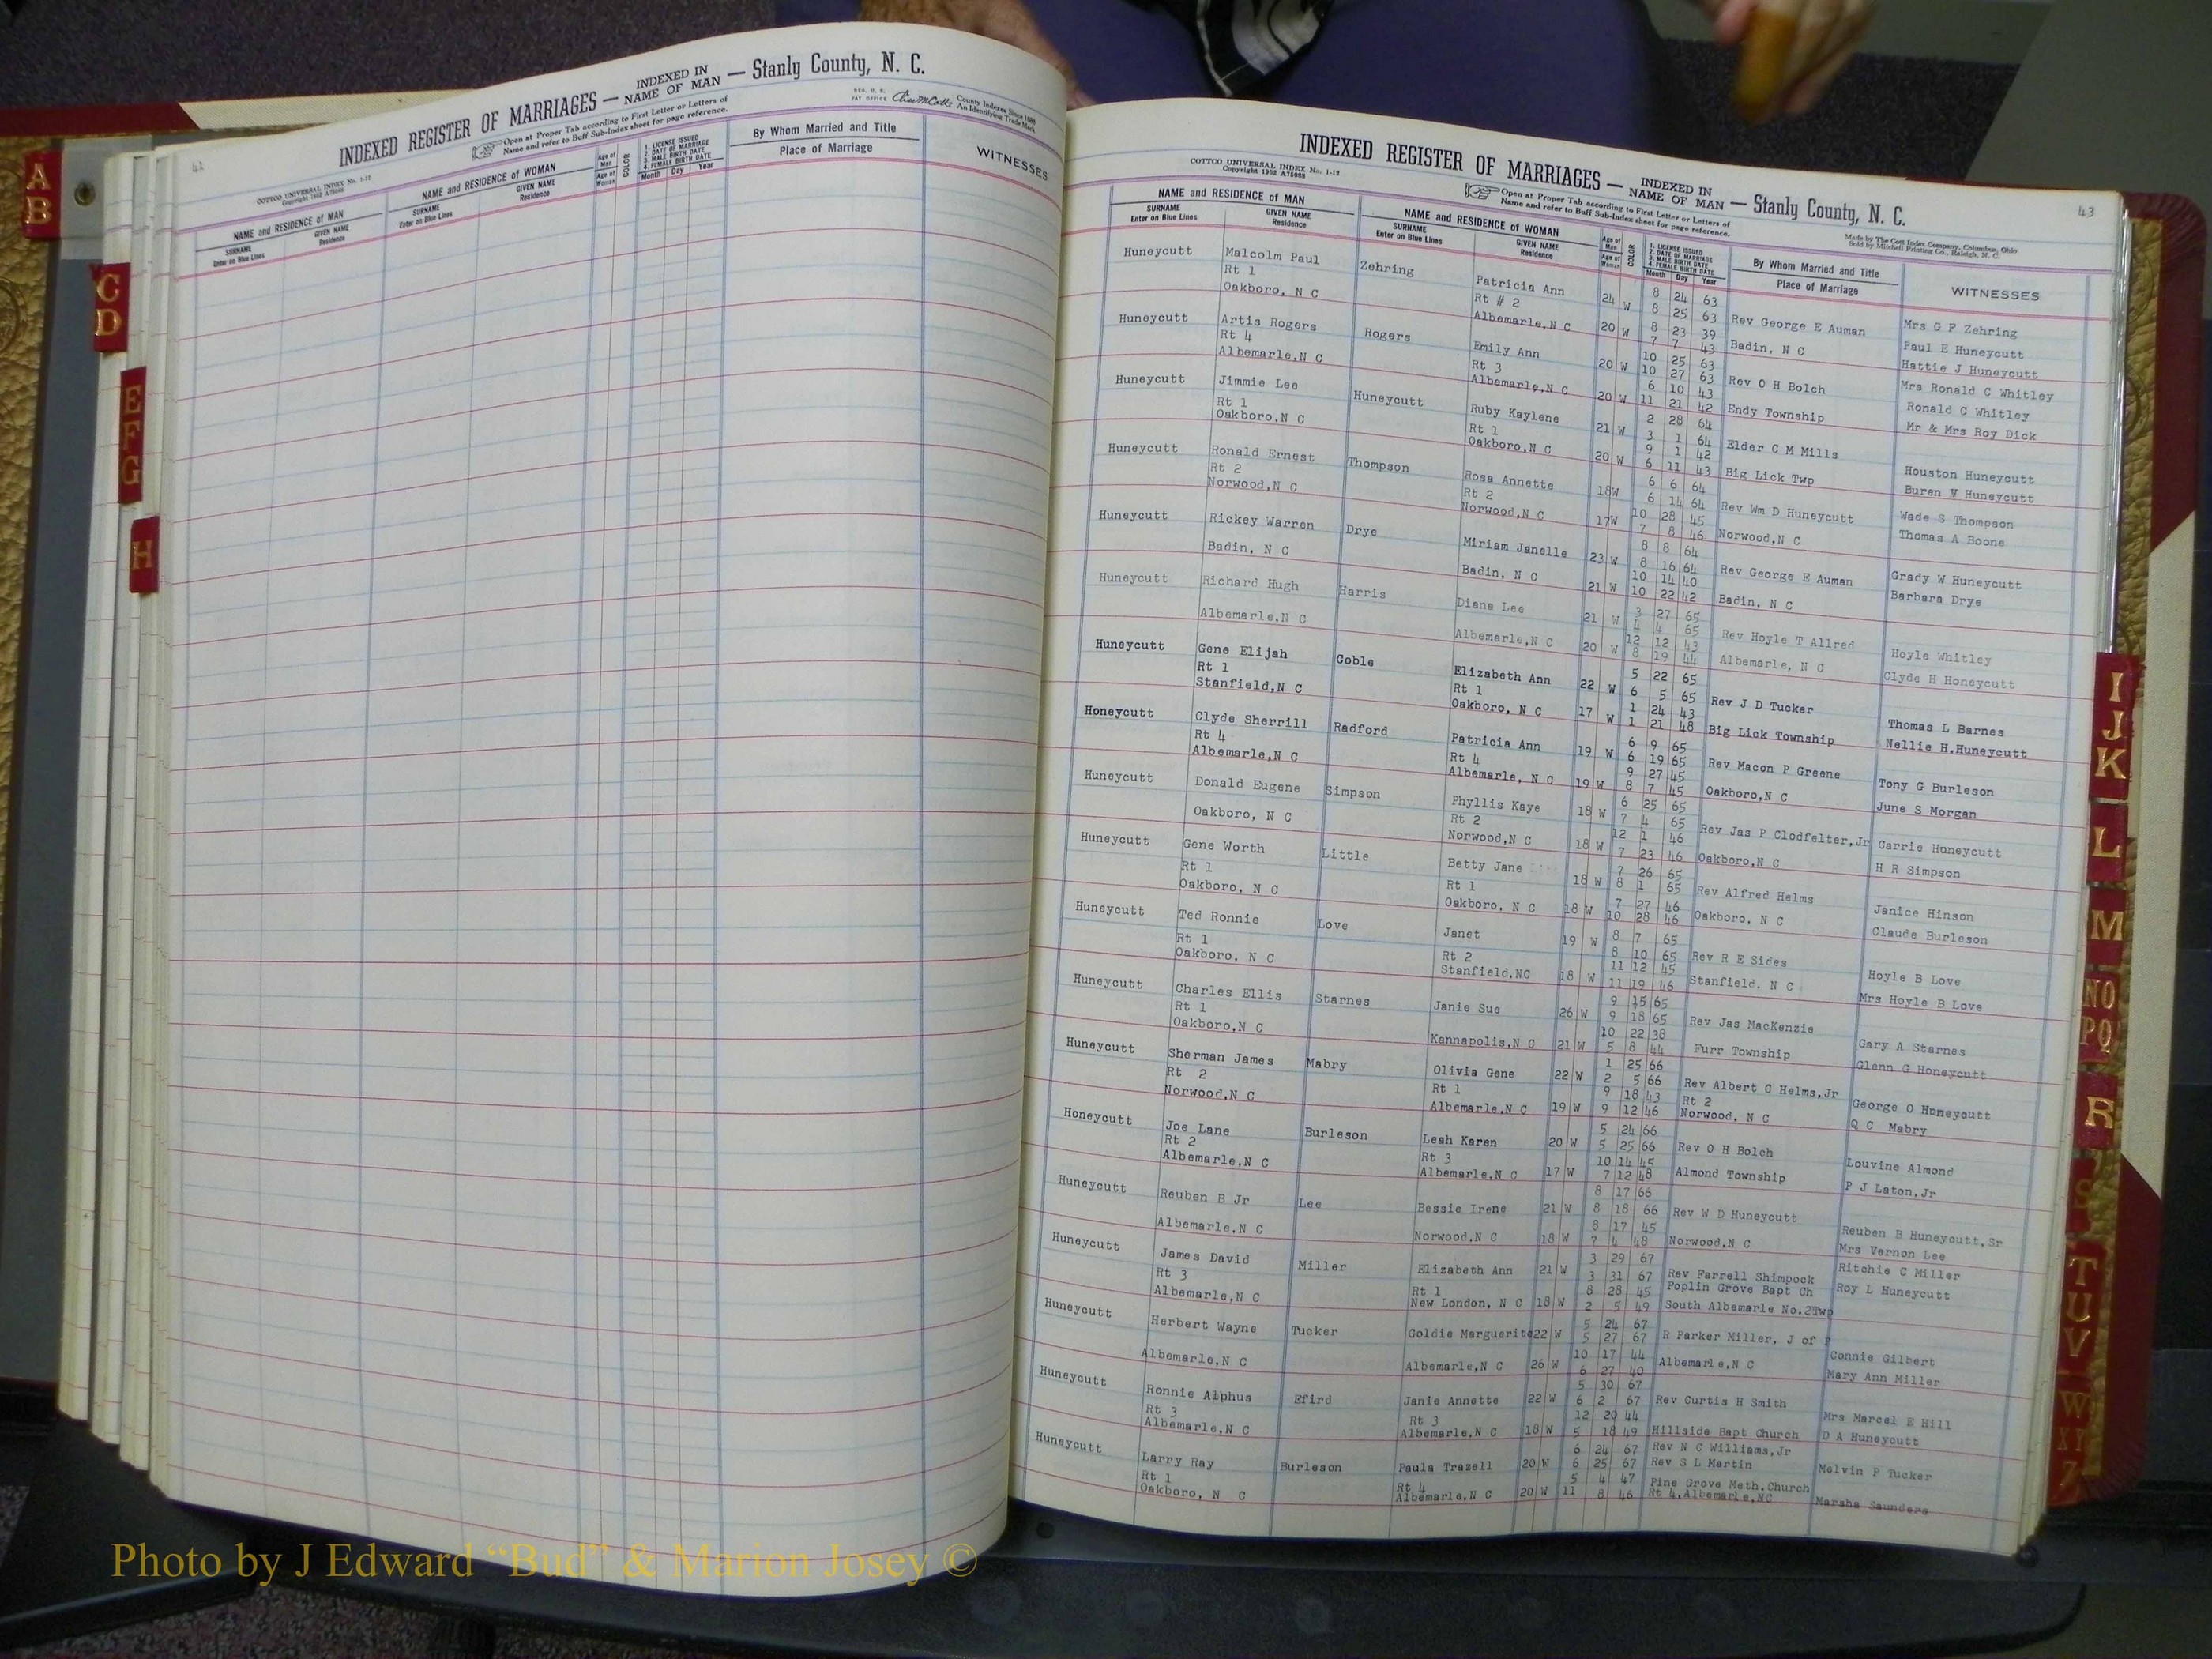 42
INDEXED REGISTER OF MARRIAGES — INDEXED IN NAME OF MAN — Stanly County, N. C.
COTTCO UNIVERSAL INDEX No. 1-12
Copyright 1952 A75088
Open at Proper Tab according to First Letter or Letters of
Name and refer to Buff Sub-Index sheet for page reference.
REG. U. S. PAT OFFICE
County Indexes Since 1888
An Identifying Trade Mark
NAME and RESIDENCE of MAN
SURNAME GIVEN NAME
Enter on Blue Lines Residence
NAME and RESIDENCE OF WOMAN
SURNAME GIVEN NAME
Enter on Blue Lines Residence
Age of Man
Age of Woman
COLOR
1. LICENSE ISSUED
2. DATE OF MARRIAGE
3. MALE BIRTH DATE
4. FEMALE BIRTH DATE
Month Day Year
By Whom Married and Title
Place of Marriage
WITNESSES
43
INDEXED REGISTER OF MARRIAGES — INDEXED IN NAME OF MAN — Stanly County, N. C.
COTTCO UNIVERSAL INDEX No. 1-12
Copyright 1952 A75088
Open at Proper Tab according to First Letter or Letters of
Name and refer to Buff Sub-Index sheet for page reference.
Made by The Cott Index Company, Columbus, Ohio
Sold by Mitchell Printing Co., Raleigh, N. C.
NAME and RESIDENCE of MAN
SURNAME GIVEN NAME
Enter on Blue Lines Residence
NAME and RESIDENCE OF WOMAN
SURNAME GIVEN NAME
Enter on Blue Lines Residence
Age of Man
Age of Woman
COLOR
1. LICENSE ISSUED
2. DATE OF MARRIAGE
3. MALE BIRTH DATE
4. FEMALE BIRTH DATE
Month Day Year
By Whom Married and Title
Place of Marriage
WITNESSES
Huneycutt Malcolm Paul Zehring Patricia Ann 24 W 8 24 63 Rev George E Auman Mrs G F Zehring
Rt 1 Rt # 2 8 25 63 Paul E Huneycutt
Oakboro, N C Albemarle,N C 20 W 8 23 39 Badin, N C Hattie J Huneycutt
7 7 43
Huneycutt Artis Rogers Rogers Emily Ann 20 W 10 25 63 Rev O H Bolch Mrs Ronald C Whitley
Rt 4 Rt 3 10 27 63 Ronald C Whitley
Albemarle,N C Albemarle,N C 20 W 6 10 43 Endy Township Mr & Mrs Roy Dick
11 21 42
Huneycutt Jimmie Lee Huneycutt Ruby Kaylene 21 W 2 28 64 Elder C M Mills Houston Huneycutt
Rt 1 Rt 1 3 1 64
Oakboro,N C Oakboro,N C 20 W 9 1 42 Big Lick Twp Buren V Huneycutt
6 11 43
Huneycutt Ronald Ernest Thompson Rosa Annette 18W 6 6 64 Rev Wm D Huneycutt Wade S Thompson
Rt 2 Rt 2 6 14 64
Norwood,N C Norwood,N C 17W 10 28 45 Norwood,N C Thomas A Boone
7 8 46
Huneycutt Rickey Warren Drye Miriam Janelle 23 W 8 8 64 Rev George E Auman Grady W Huneycutt
8 16 64
Badin, N C Badin, N C 21 W 10 14 40 Badin, N C Barbara Drye
10 22 42
Huneycutt Richard Hugh Harris Diana Lee 21 W 3 27 65 Rev Hoyle T Allred Hoyle Whitley
4 4 65
Albemarle,N C Albemarle,N C 20 W 12 12 43 Albemarle, N C Clyde H Honeycutt
8 19 44
Huneycutt Gene Elijah Coble Elizabeth Ann 22 W 5 22 65 Rev J D Tucker Thomas L Barnes
Rt 1 Rt 1 6 5 65
Stanfield,N C Oakboro, N C 17 W 1 24 43 Big Lick Township Nellie H.Huneycutt
1 21 48
Honeycutt Clyde Sherrill Radford Patricia Ann 19 W 6 9 65 Rev Macon P Greene Tony G Burleson
Rt 4 Rt 4 6 19 65
Albemarle,N C Albemarle, N C 19 W 9 27 45 Oakboro,N C June S Morgan
8 7 45
Huneycutt Donald Eugene Simpson Phyllis Kaye 18 W 6 25 65 Rev Jas P Clodfelter,Jr Carrie Honeycutt
Rt 2 7 4 65
Oakboro, N C Norwood,N C 18 W 12 1 46 Oakboro,N C H R Simpson
7 23 46
Huneycutt Gene Worth Little Betty Jane 18 W 7 26 65 Rev Alfred Helms Janice Hinson
Rt 1 Rt 1 8 1 65
Oakboro, N C Oakboro, N C 18 W 7 27 46 Oakboro, N C Claude Burleson
10 28 46
Huneycutt Ted Ronnie Love Janet 19 W 8 7 65 Rev R E Sides Hoyle B Love
Rt 1 Rt 2 8 10 65
Oakboro. N C Stanfield,NC 18 W 11 12 45 Stanfield. N C Mrs Hoyle B Love
11 19 46
Huneycutt Charles Ellis Starnes Janie Sue 26 W 9 15 65 Rev Jas MacKenzie Gary A Starnes
Rt 1 9 18 65
Oakboro,N C Kannapolis,N C 21 W 10 22 38 Furr Township Glenn G Honeycutt
5 8 44
Huneycutt Sherman James Mabry Olivia Gene 22 W 1 25 66 Rev Albert C Helms,Jr George O Honeycutt
Rt 2 Rt 1 2 5 66 Rt 2
Norwood,N C Albemarle,N C 19 W 9 18 43 Norwood, N C Q C Mabry
9 12 46
Honeycutt Joe Lane Burleson Leah Karen 20 W 5 24 66 Rev O H Bolch Louvine Almond
Rt 2 Rt 3 5 25 66
Albemarle,N C Albemarle,N C 17 W 10 14 45 Almond Township P J Laton,Jr
7 12 48
Huneycutt Reuben B Jr Lee Bessie Irene 21 W 8 17 66 Rev W D Huneycutt Reuben B Huneycutt,Sr
8 18 66
Albemarle,N C Norwood,N C 18 W 8 17 45 Norwood,N C Mrs Vernon Lee
7 4 48
Huneycutt James David Miller Elizabeth Ann 21 W 3 29 67 Rev Farrell Shimpock Ritchie C Miller
Rt 3 Rt 1 3 31 67 Poplin Grove Bapt Ch Roy L Huneycutt
Albemarle,N C New London, N C 18 W 8 28 45 South Albemarle No.2Twp
2 5 49
Huneycutt Herbert Wayne Tucker Goldie Marguerite 22 W 5 24 67 R Parker Miller, J of P Connie Gilbert
5 27 67
Albemarle,N C Albemarle,N C 26 W 10 17 44 Albemarle,N C Mary Ann Miller
6 27 40
Huneycutt Ronnie Alphus Efird Janie Annette 22 W 5 30 67 Rev Curtis H Smith Mrs Marcel E Hill
Rt 3 Rt 3 6 2 67
Albemarle,N C Albemarle,N C 18 W 12 20 44 Hillside Bapt Church D A Huneycutt
5 18 49
Huneycutt Larry Ray Burleson Paula Trazell 20 W 6 24 67 Rev N C Williams,Jr Melvin P Tucker
Rt 1 Rt 4 6 25 67 Rev S L Martin
Oakboro, N C Albemarle,N C 20 W 5 4 47 Pine Grove Meth.Church Marsha Saunders
11 8 46 Rt 4,Albemarle,NC
A
B
C
D
E
F
G
H
I
J
K
L
M
NO
PQ
R
S
T
U
V
W
X Y
Z
Photo by J Edward “Bud” & Marion Josey ©